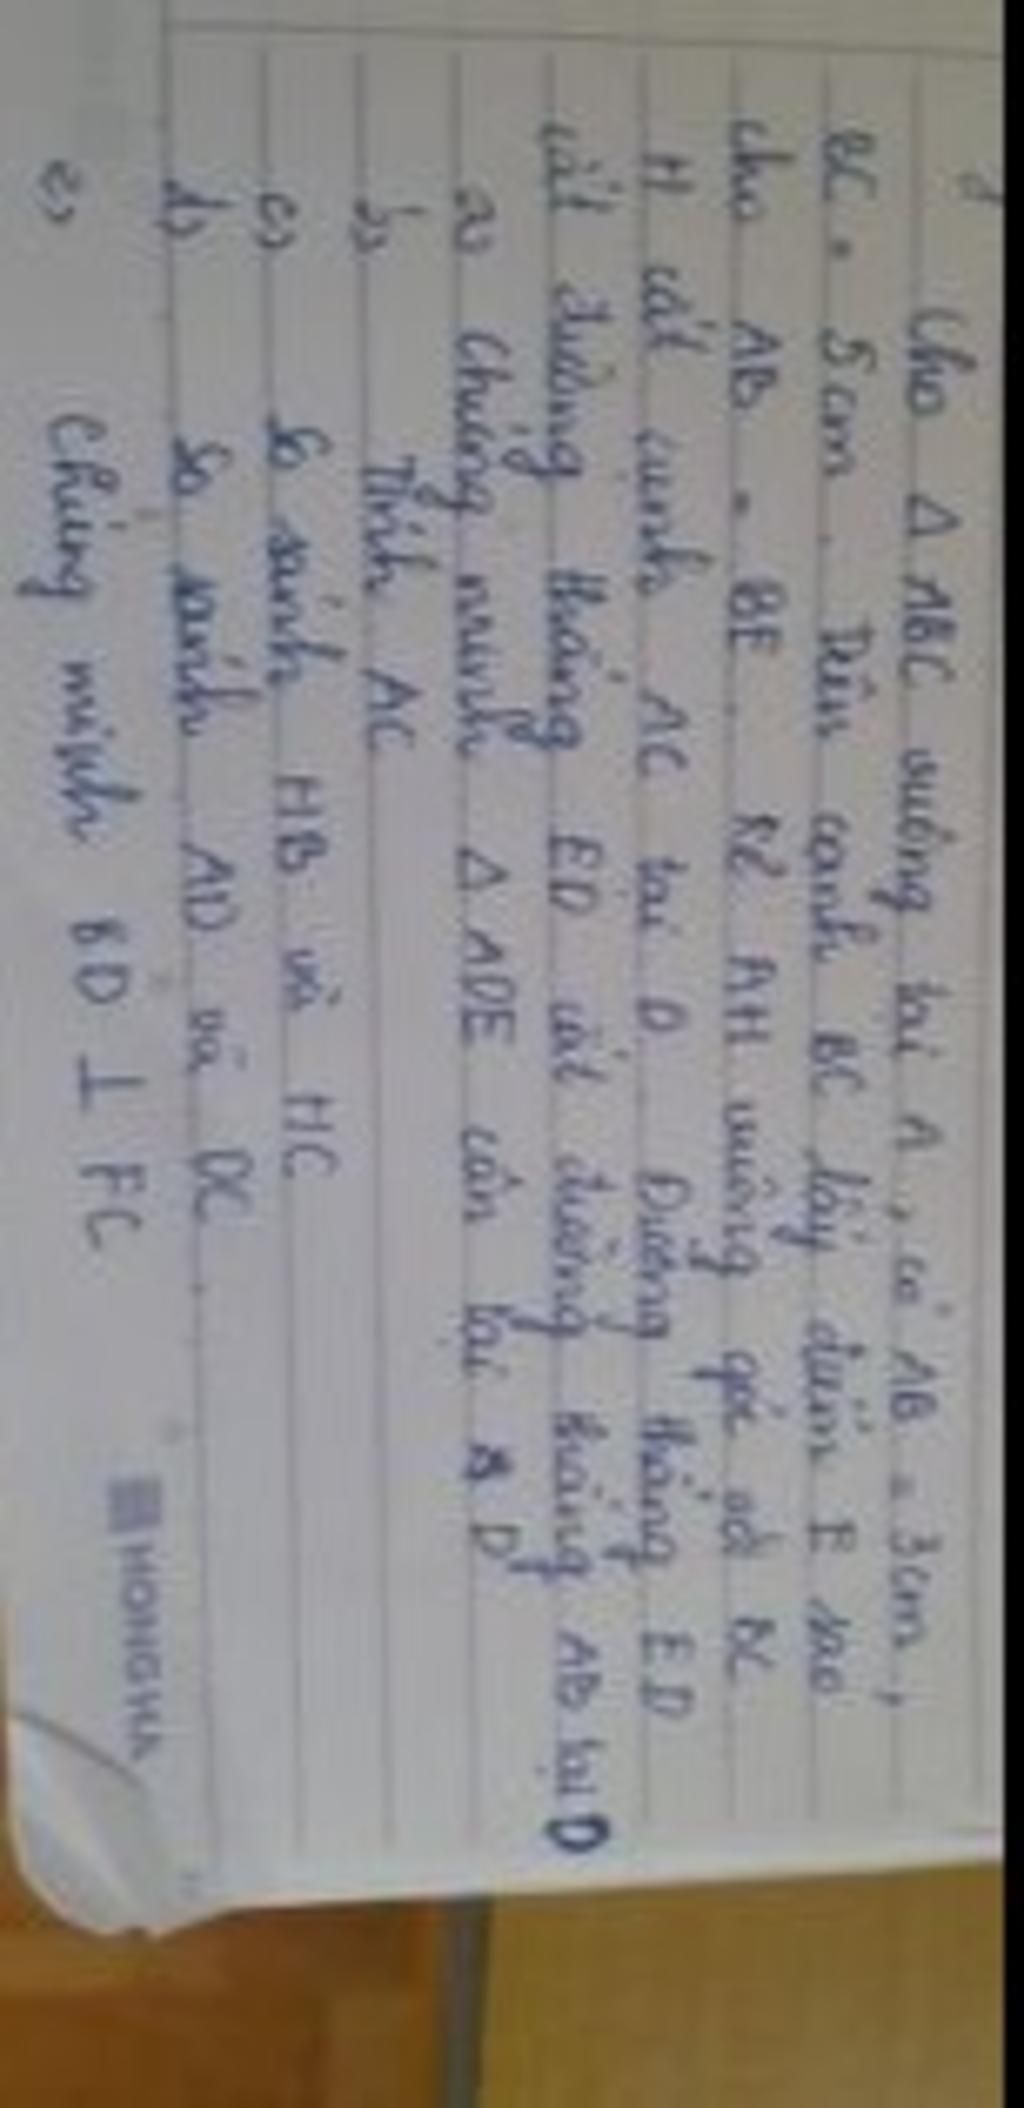 Cho Δ ABC vuông tại A, có AB = 3cm,
BC = 5cm. Trên cạnh BC lấy điểm E sao
cho AB = BE. Kẻ AH vuông góc với BC
H cắt cạnh AC tại D Đường thẳng ED
cắt đường thẳng ED cắt đường thẳng AB tại D
a) Chứng minh Δ ADE cân tại D
b) Tính AC
c) So sánh HB và HC
d) So sánh AD và DC.
e) Chứng minh BD ⊥ FC
HONGHA